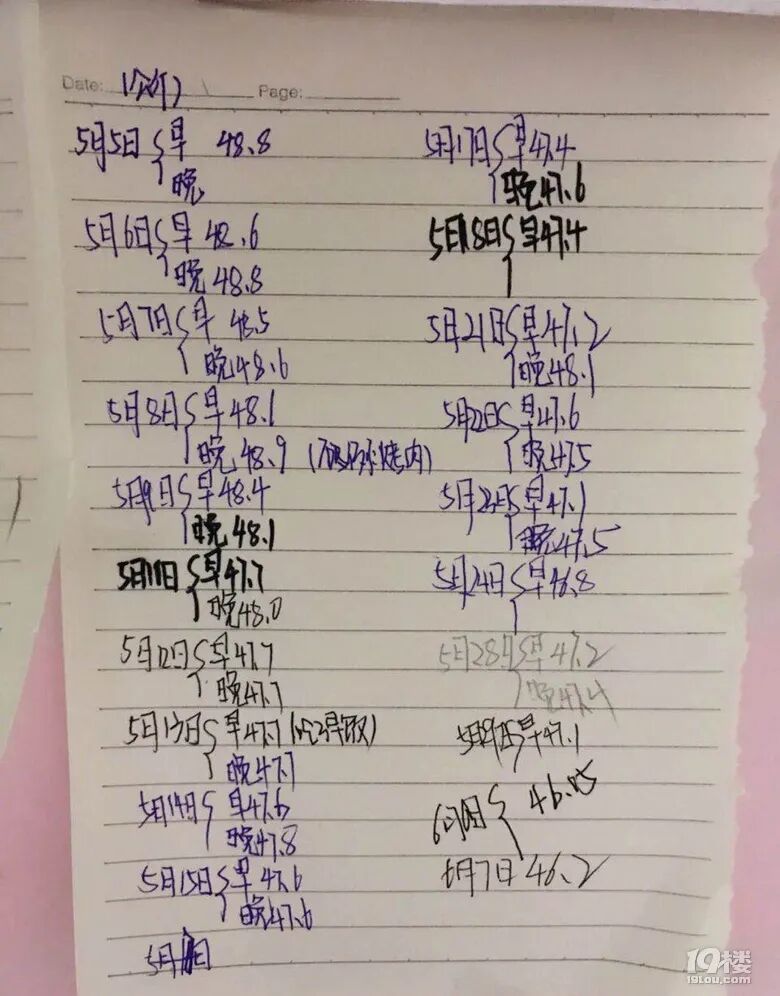 Date: (公斤) Page:
5月5日 早 48.8
晚
5月6日 早 48.6
晚 48.8
5月7日 早 48.5
晚48.6
5月8日 早48.1
晚 48.9 (烤肉)
5月9日 早48.4
晚 48.1
5月11日 早47.7
晚48.0
5月12日 早47.7
晚47.7
5月13日 早47.7 (吃早饭)
晚47.7
5月14日 早47.6
晚47.8
5月15日 早47.6
晚47.6
5月 日
5月17日 早47.4
晚47.6
5月18日 早47.4
5月21日 早47.2
晚48.1
5月22日 早47.6
晚47.5
早47.1
晚47.5
5月24日 早46.8
5月28日 早47.2
晚47.4
早47.1
46.05
6月7日 46.2
19楼
19lou.com